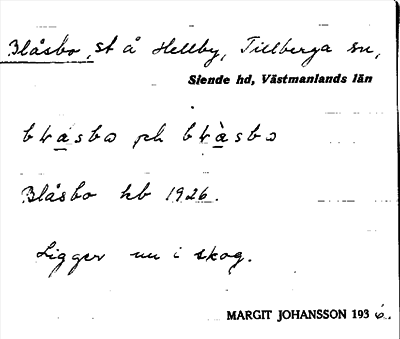 Blåsbo, st å Hellby, Tillberga sn,
Siende hd, Västmanlands län
blåsbo och blåsbo
Blåsbo hb 1926.
Ligger nu i skog.
MARGIT JOHANSSON 1936.